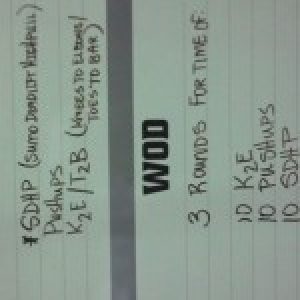 SDHP (SUMO DEADLIFT HIGHPULL)
PUSHUPS
K2E/T2B (KNEES TO ELBOWS/
TOES TO BAR)
WOD
3 ROUNDS FOR TIME OF:
10 K2E
10 PUSHUPS
10 SDHP